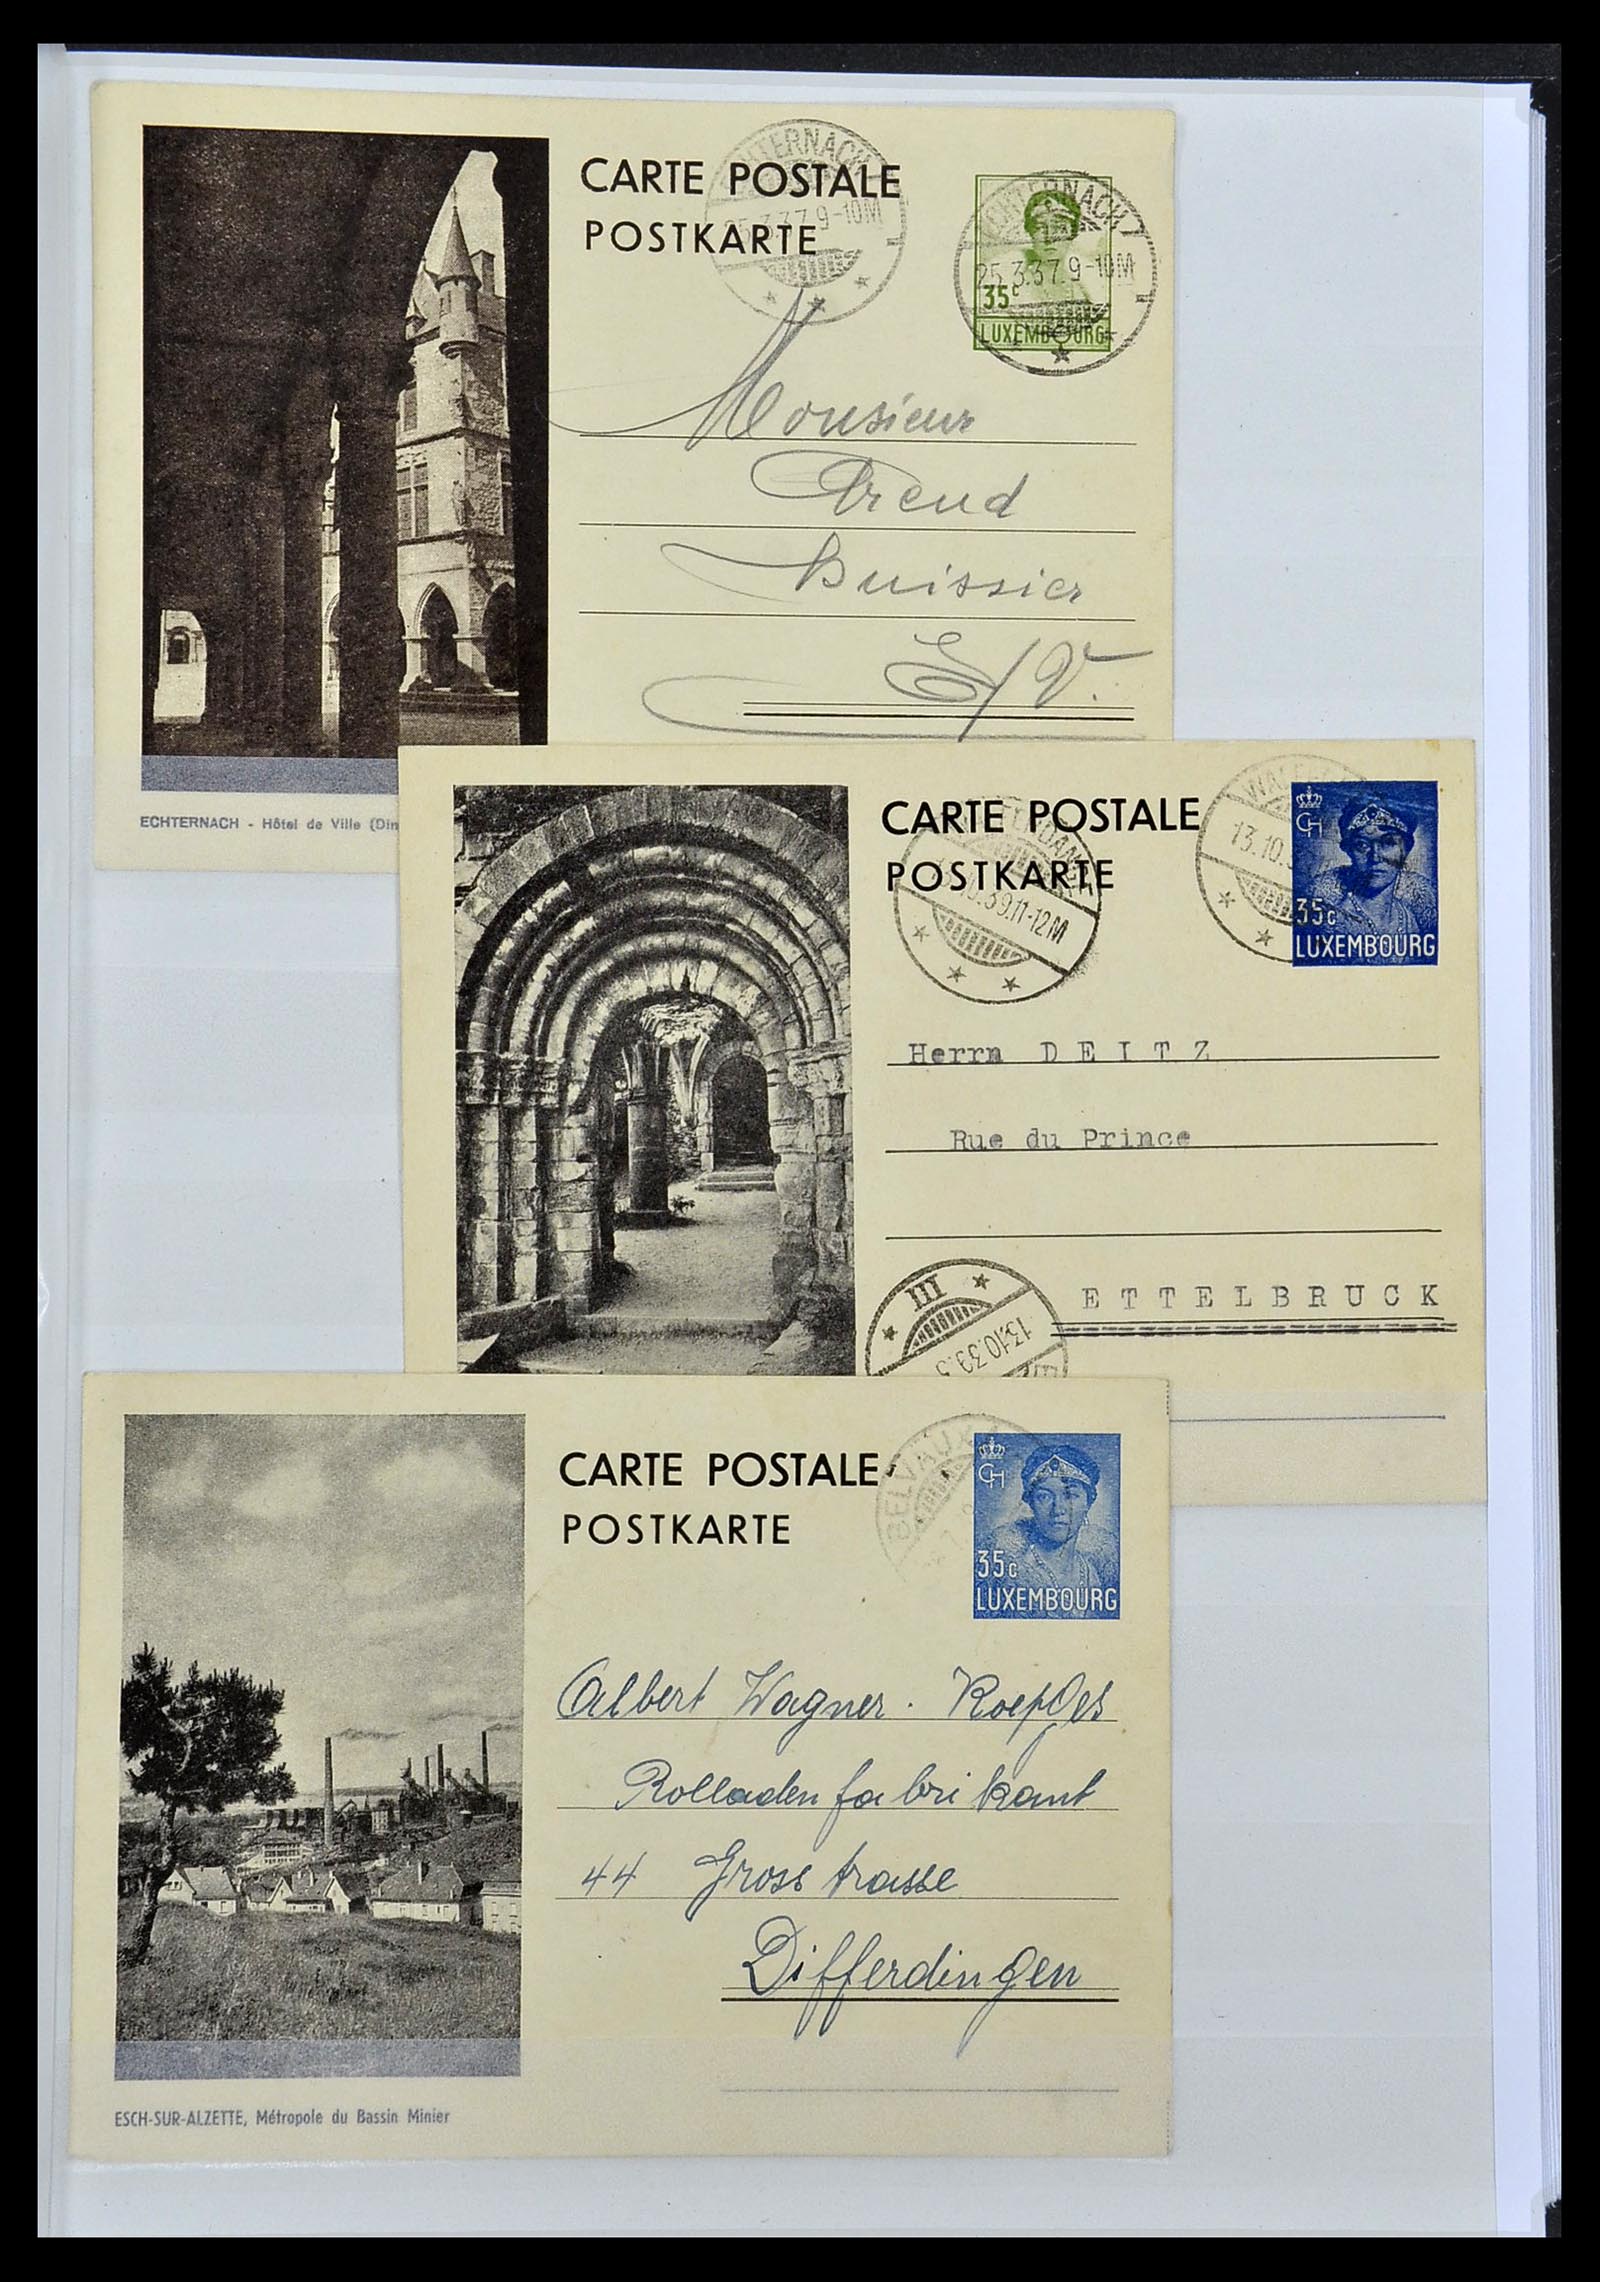 CARTE POSTALE
POSTKARTE
ECHTERNACH
25.3.37.9-10M
ECHTERNACH
25.3.37.9-10M
35c
LUXEMBOURG
Monsieur
Arend
Huissier
E/V.
ECHTERNACH - Hôtel de Ville (Din
CARTE POSTALE
POSTKARTE
10.39.11-12M
13.10.3
CH
35c
LUXEMBOURG
Herrn DEITZ
Rue du Prince
ETTELBRUCK
III
13.10.39.
CARTE POSTALE
POSTKARTE
BELVAUX
CH
35c
LUXEMBOURG
Albert Wagner-Koepges
Rolladenfabrikant
44 Grosstrasse
Differdingen
ESCH-SUR-ALZETTE, Métropole du Bassin Minier